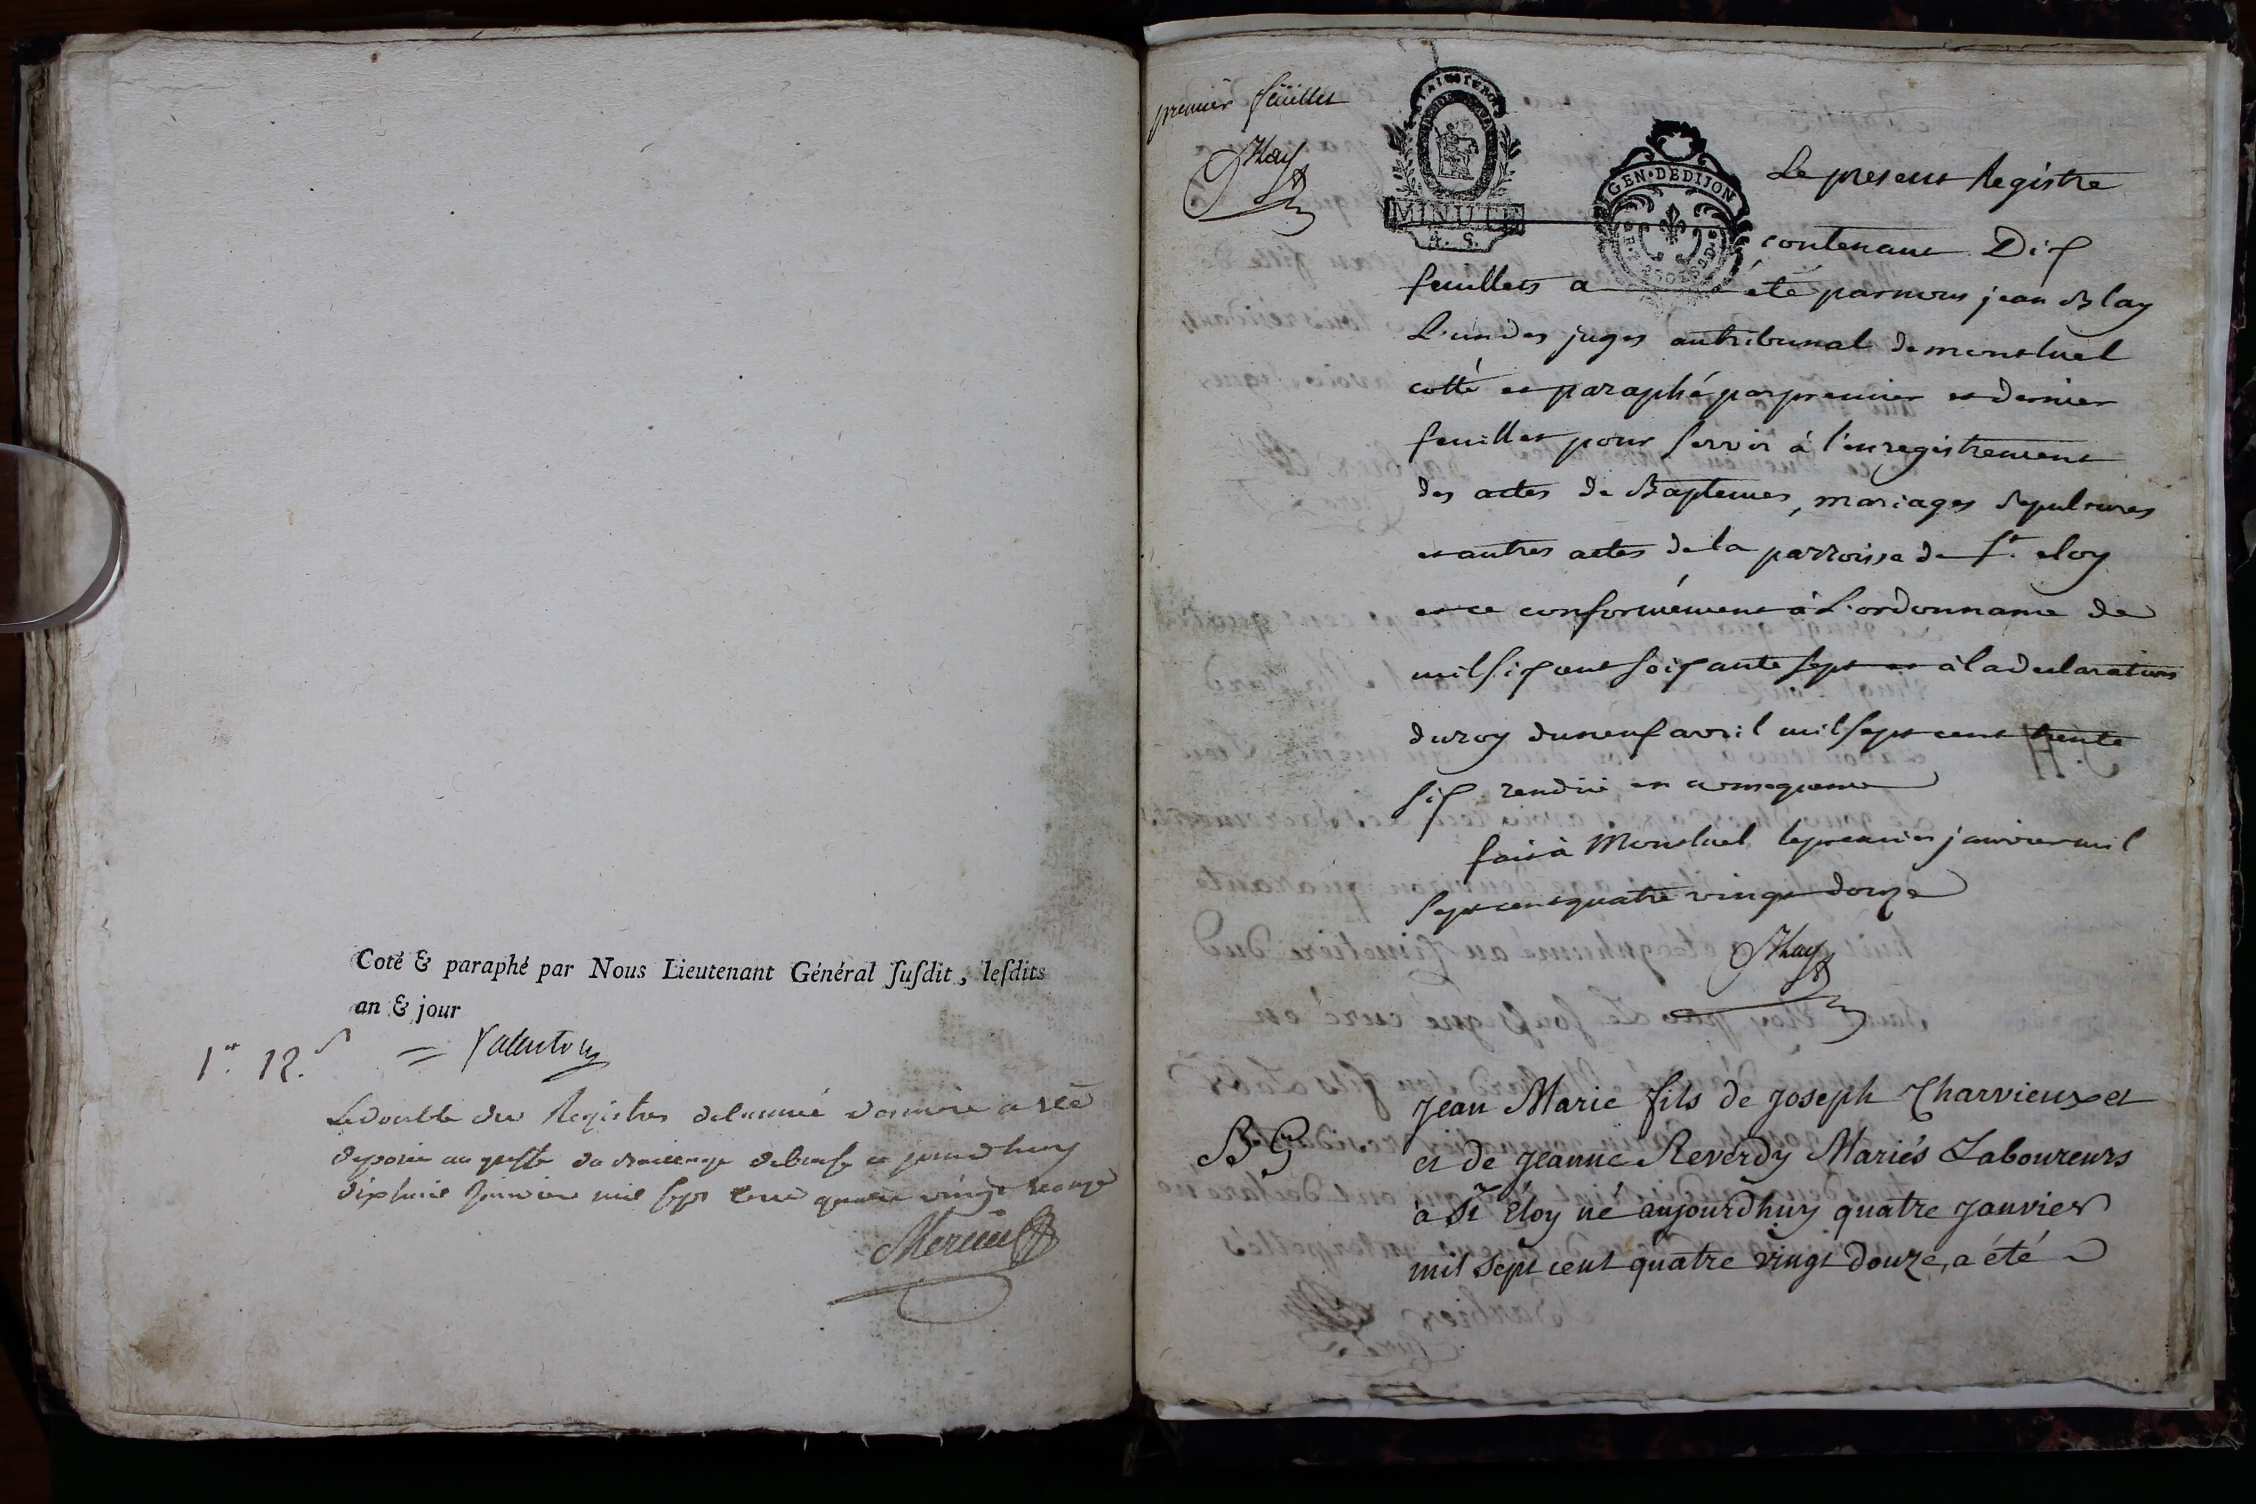 Coté & paraphé par Nous Lieutenant Général ſuſdit, leſdits
an & jour
1.er 12.s = Valentin
Le double du Registre de l'année derniere a été
déposé au greffe du Bailliage de bresse ce jourd'huy
dixhuit Janvier mil sept cent quatre vingt onze
premier feuillet
Blay
MINUTE
A. S.
GEN. DE DIJON
Le present Registre
contenant Dix
feuillets a été par nous jean Blay
L'un des juges au tribunal de montluel
cotté et paraphé par premier et dernier
feuillet pour servir à l'enregistrement
des actes de Baptemes, mariages Sepultures
et autres actes de la parroisse de St. eloy
et ce conformément à L'ordonnance de
mil six cent soixante sept et à la declaration
du roy du neuf avril mil sept cent trente
six rendüe en consequence
fait à Montluel le premier janvier mil
sept cent quatre vingt douze
Blay
B. G
Jean Marie fils de Joseph Charvieux et
et de Jeanne Reverdy Mariés Laboureurs
à St Eloy né aujourdhuy quatre Janvier
mil sept cent quatre vingt douze, a été